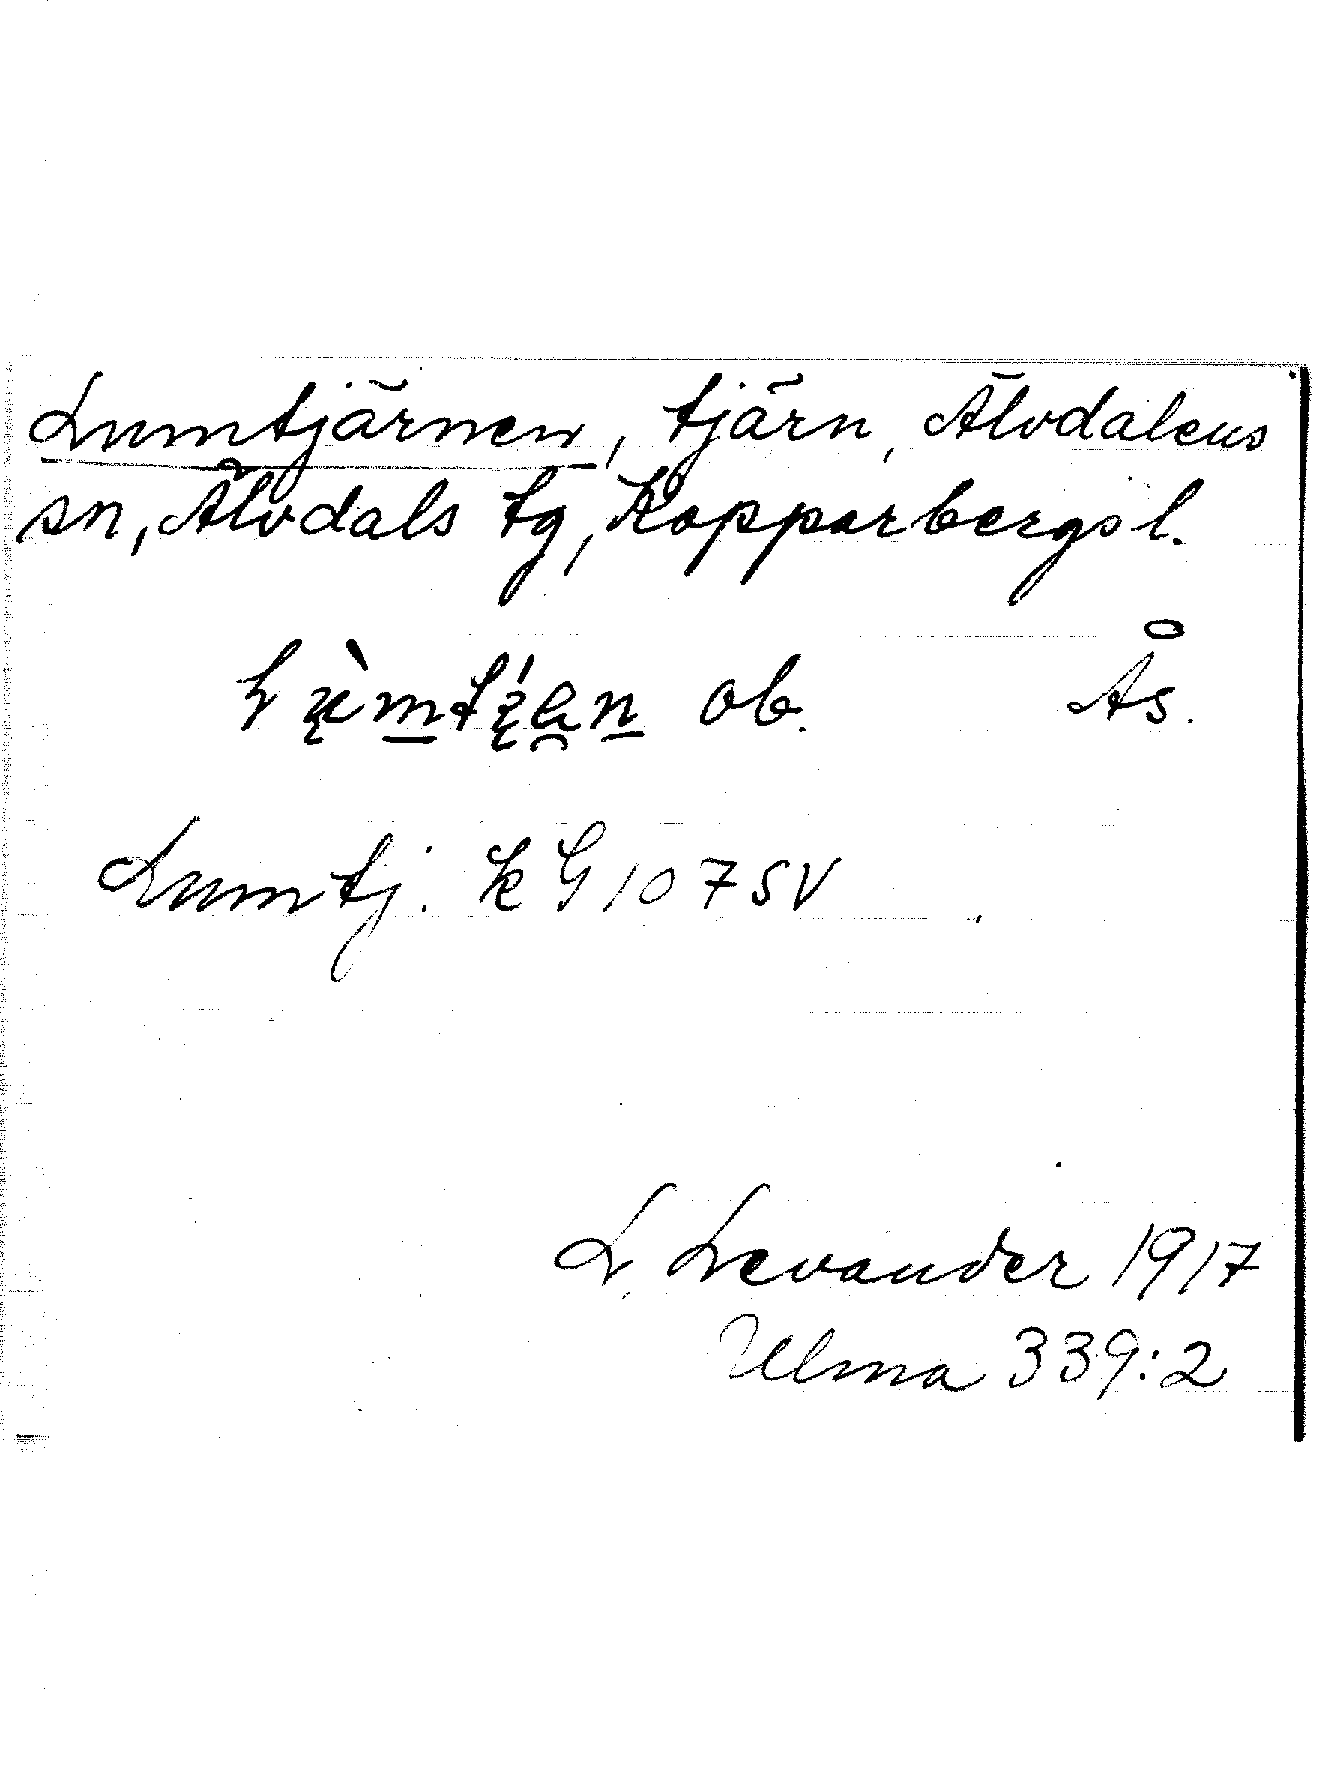 Lumtjärnen, tjärn, Älvdalens
sn, Älvdals tg, Kopparbergs l.
ob. Ås.
Lumtj. kG 107 SV
L. Levander 1917
Ulma 339:2